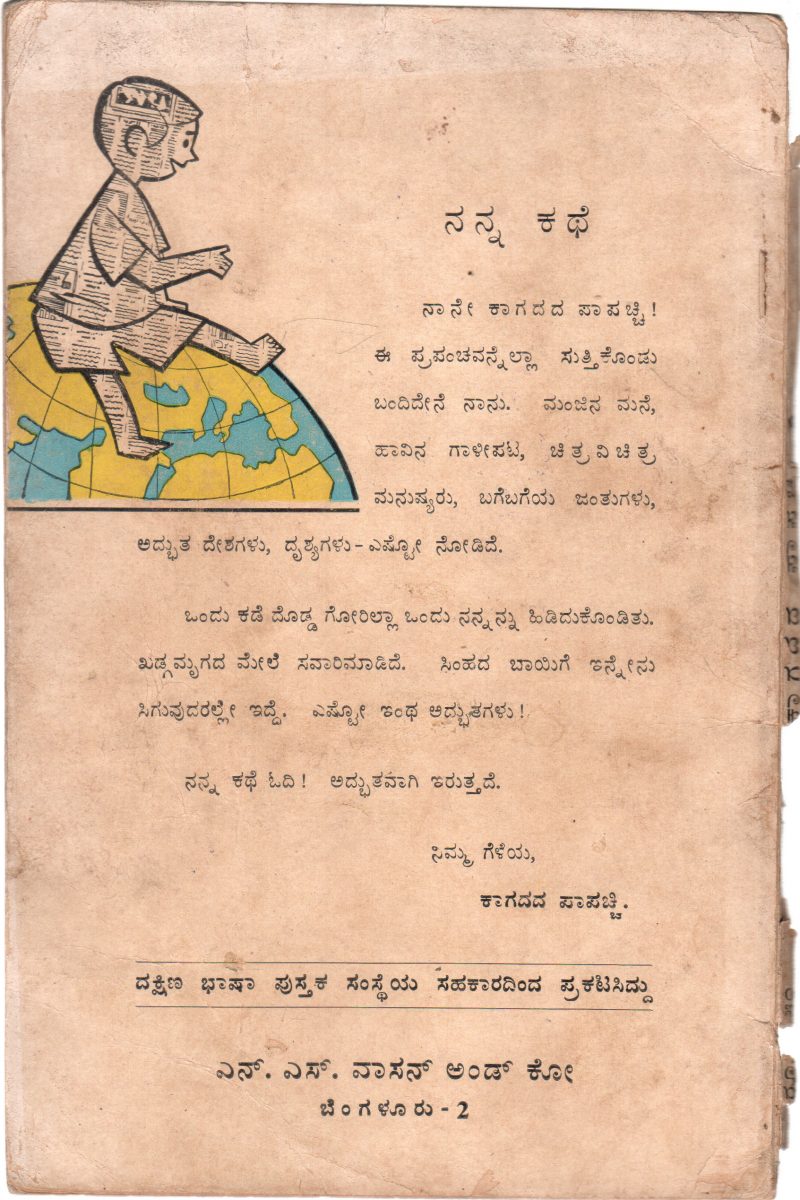 ನನ್ನ ಕಥೆ
ನಾನೇ ಕಾಗದದ ಪಾಪಚ್ಚಿ!
ಈ ಪ್ರಪಂಚವನ್ನೆಲ್ಲಾ ಸುತ್ತಿಕೊಂಡು
ಬಂದಿದೇನೆ ನಾನು. ಮಂಜಿನ ಮನೆ,
ಹಾವಿನ ಗಾಳೀಪಟ, ಚಿತ್ರವಿಚಿತ್ರ
ಮನುಷ್ಯರು, ಬಗೆಬಗೆಯ ಜಂತುಗಳು,
ಅದ್ಭುತ ದೇಶಗಳು, ದೃಶ್ಯಗಳು-ಎಷ್ಟೋ ನೋಡಿದೆ.
ಒಂದು ಕಡೆ ದೊಡ್ಡ ಗೋರಿಲ್ಲಾ ಒಂದು ನನ್ನನ್ನು ಹಿಡಿದುಕೊಂಡಿತು.
ಖಡ್ಗಮೃಗದ ಮೇಲೆ ಸವಾರಿಮಾಡಿದೆ. ಸಿಂಹದ ಬಾಯಿಗೆ ಇನ್ನೇನು
ಸಿಗುವುದರಲ್ಲೇ ಇದ್ದೆ. ಎಷ್ಟೋ ಇಂಥ ಅದ್ಭುತಗಳು!
ನನ್ನ ಕಥೆ ಓದಿ! ಅದ್ಭುತವಾಗಿ ಇರುತ್ತದೆ.
ನಿಮ್ಮ ಗೆಳೆಯ,
ಕಾಗದದ ಪಾಪಚ್ಚಿ.
ದಕ್ಷಿಣ ಭಾಷಾ ಪುಸ್ತಕ ಸಂಸ್ಥೆಯ ಸಹಕಾರದಿಂದ ಪ್ರಕಟಿಸಿದ್ದು
ಎನ್. ಎಸ್. ವಾಸನ್ ಅಂಡ್ ಕೋ
ಬೆಂಗಳೂರು-2